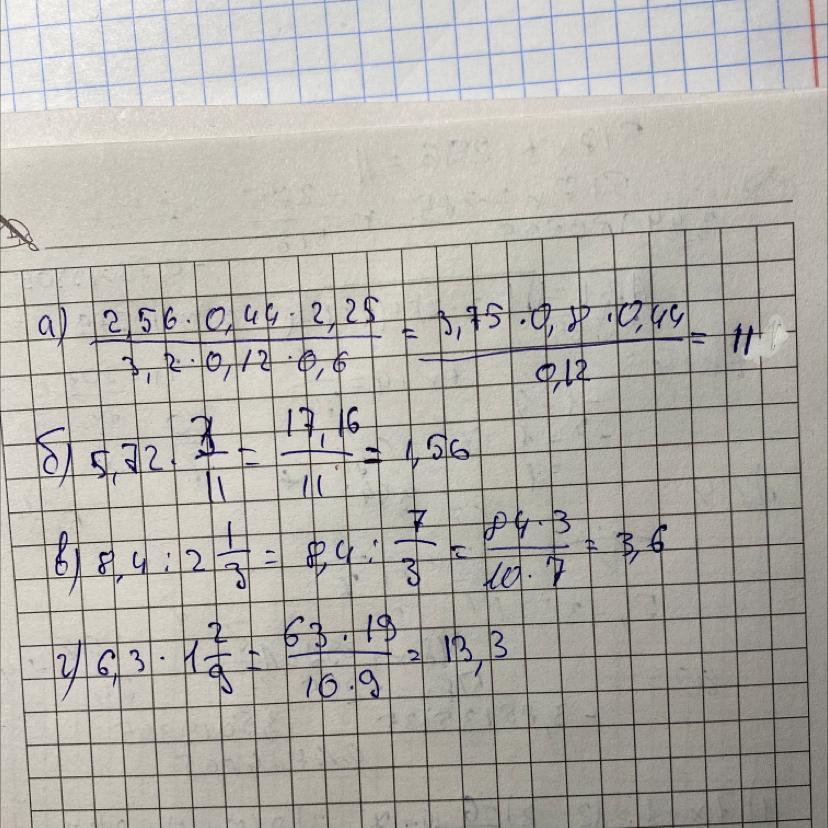 а) 2,56 · 0,44 · 2,25 / 3,2 · 0,12 · 0,6 = 3,75 · 0,8 · 0,44 / 0,12 = 11
б) 5,72 · 3/11 = 17,16/11 = 1,56
в) 8,4 : 2 1/3 = 8,4 : 7/3 = 84 · 3 / 10 · 7 = 3,6
г) 6,3 · 1 2/9 = 63 · 19 / 10 · 9 = 13,3